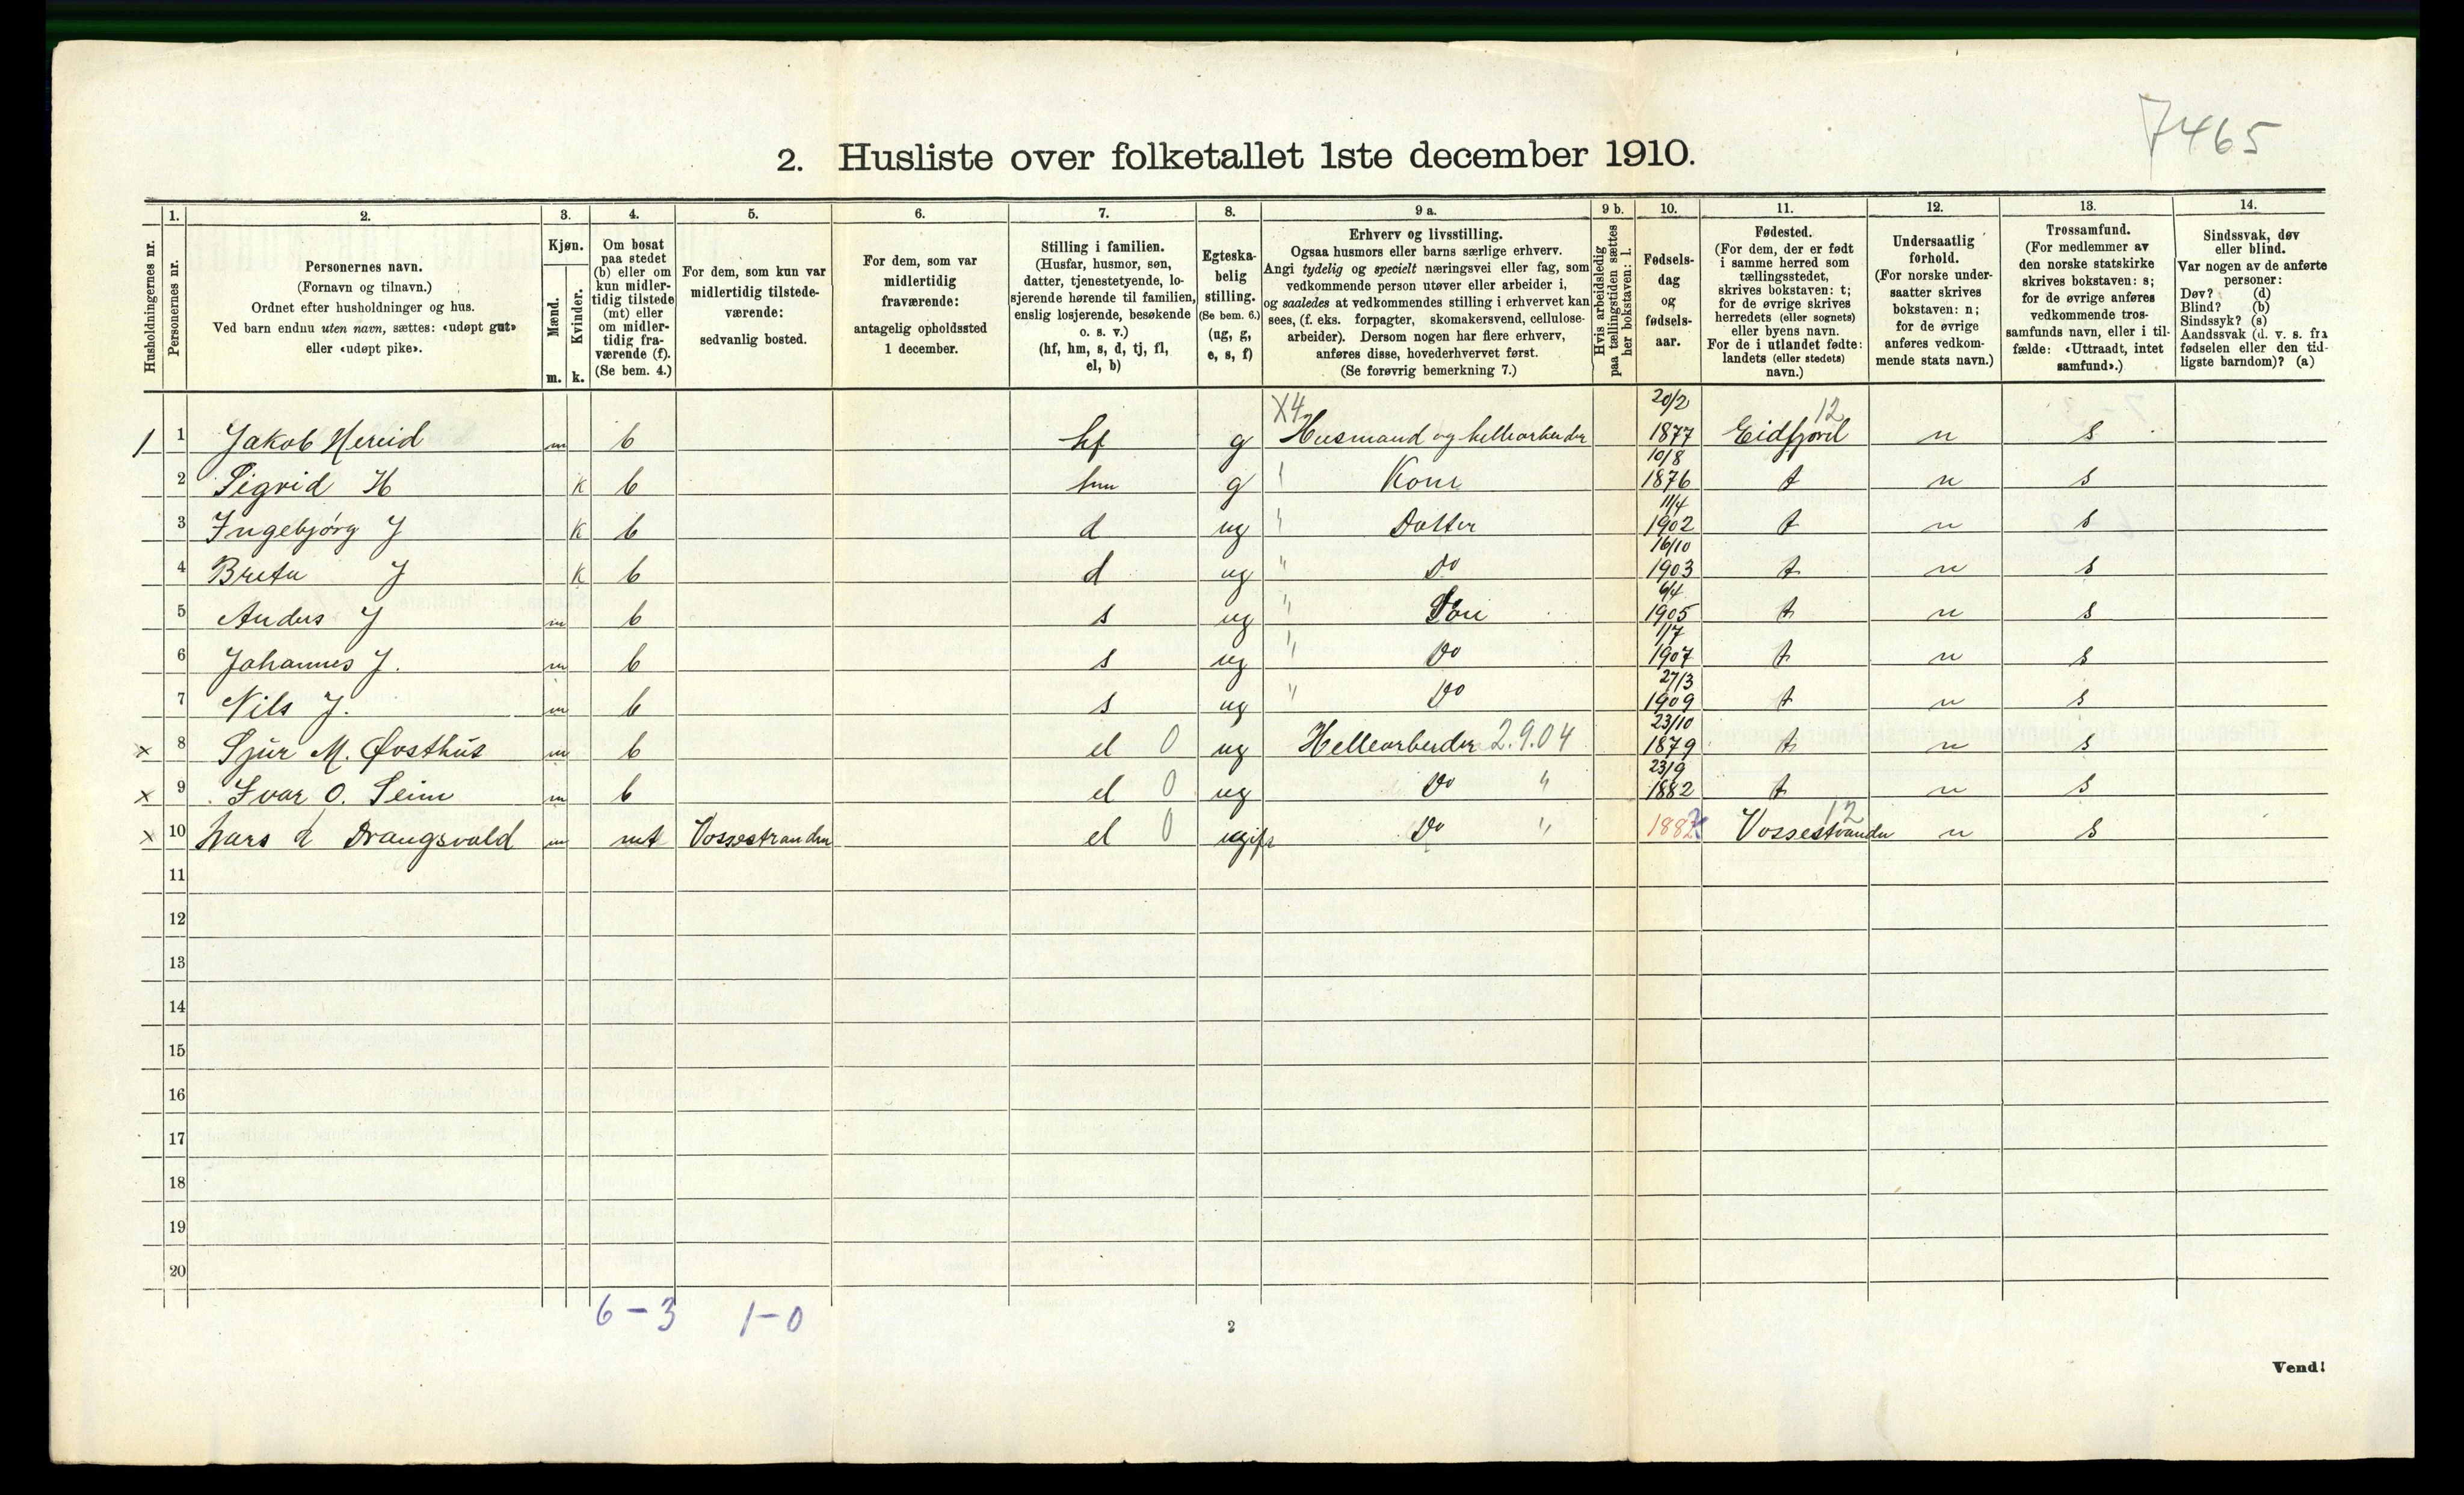 7465
2. Husliste over folketallet 1ste december 1910.
1. 2. 3. 4. 5. 6. 7. 8. 9 a. 9 b. 10. 11. 12. 13. 14.
Husholdningernes nr.
Personernes nr.
Personernes navn.
(Fornavn og tilnavn.)
Ordnet efter husholdninger og hus.
Ved barn endnu uten navn, sættes: «udøpt gut»
eller «udøpt pike».
Kjøn.
Mænd.
Kvinder.
m. k.
Om bosat
paa stedet
(b) eller om
kun midler-
tidig tilstede
(mt) eller
om midler-
tidig fra-
værende (f).
(Se bem. 4.)
For dem, som kun var
midlertidig tilstede-
værende:
sedvanlig bosted.
For dem, som var
midlertidig
fraværende:
antagelig opholdssted
1 december.
Stilling i familien.
(Husfar, husmor, søn,
datter, tjenestetyende, lo-
sjerende hørende til familien,
enslig losjerende, besøkende
o. s. v.)
(hf, hm, s, d, tj, fl,
el, b)
Egteska-
belig
stilling.
(Se bem. 6.)
(ug, g,
e, s, f)
Erhverv og livsstilling.
Ogsaa husmors eller barns særlige erhverv.
Angi tydelig og specielt næringsvei eller fag, som
vedkommende person utøver eller arbeider i,
og saaledes at vedkommendes stilling i erhvervet kan
sees, (f. eks. forpagter, skomakersvend, cellulose-
arbeider). Dersom nogen har flere erhverv,
anføres disse, hovederhvervet først.
(Se forøvrig bemerkning 7.)
Hvis arbeidsledig
paa tællingstiden sættes
her bokstaven: l.
Fødsels-
dag
og
fødsels-
aar.
Fødested.
(For dem, der er født
i samme herred som
tællingsstedet,
skrives bokstaven: t;
for de øvrige skrives
herredets (eller sognets)
eller byens navn.
For de i utlandet fødte:
landets (eller stedets)
navn.)
Undersaatlig
forhold.
(For norske under-
saatter skrives
bokstaven: n;
for de øvrige
anføres vedkom-
mende stats navn.)
Trossamfund.
(For medlemmer av
den norske statskirke
skrives bokstaven: s;
for de øvrige anføres
vedkommende tros-
samfunds navn, eller i til-
fælde: «Uttraadt, intet
samfund».)
Sindssvak, døv
eller blind.
Var nogen av de anførte
personer:
Døv? (d)
Blind? (b)
Sindssyk? (s)
Aandssvak (d. v. s. fra
fødselen eller den tid-
ligste barndom)? (a)
X4 20/2 12
1 1 Jakob Hereid m b hf g Husmand og hellearbeider 1877 Eidfjord n s
10/8
2 Sigrid H k b hm g " Kone 1876 t n s
11/4
3 Ingebjørg J k b d ug " Datter 1902 t n s
16/10
4 Breta J k b d ug " Do 1903 t n s
6/4
5 Anders J m b s ug " Søn 1905 t n s
1/7
6 Johannes J. m b s ug " Do 1907 t n s
27/3
7 Nils J. m b s ug " Do 1909 t n s
23/10
x 8 Sjur M. Øvsthus m b el 0 ug Hellearbeider 2.9.04 1879 t n s
23/9
x 9 Ivar O. Seim m b el 0 ug Do " 1882 t n s
12
x 10 Lars L Drangsvold m mt Vossestranden el 0 ugift Do " 1882 Vossestranden n s
11
12
13
14
15
16
17
18
19
20
6 - 3 1 - 0
2
Vend!